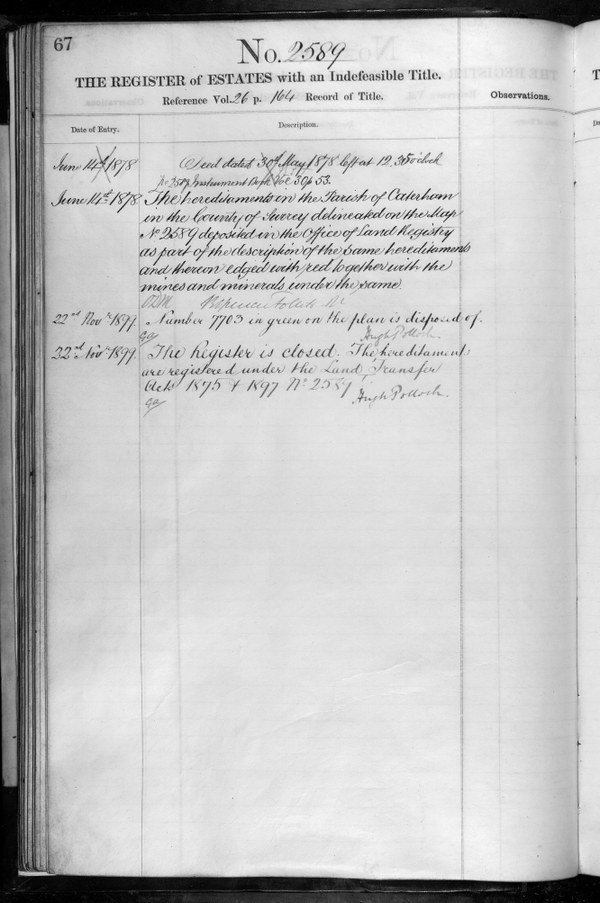 67
No. 2589
THE REGISTER of ESTATES with an Indefeasible Title.
Reference Vol. 26 p. 164 Record of Title.
Observations.
Date of Entry.
Description.
June 14th 1878
Deed dated 30th May 1878 left at 12.35 o'clock
Instrument 30 p 53.
June 14th 1878
The hereditaments in the Parish of Caterham
in the County of Surrey delineated on the Map
No 2589 deposited in the Office of Land Registry
as part of the description of the same hereditaments
and thereon edged with red together with the
mines and minerals under the same.
22nd Novr 1899.
Number 7703 in green on the plan is disposed of.
Hugh Pollock.
22nd Novr 1899.
The Register is closed. The hereditaments
are registered under the Land Transfer
Acts 1875 & 1897 No 2589
Hugh Pollock.